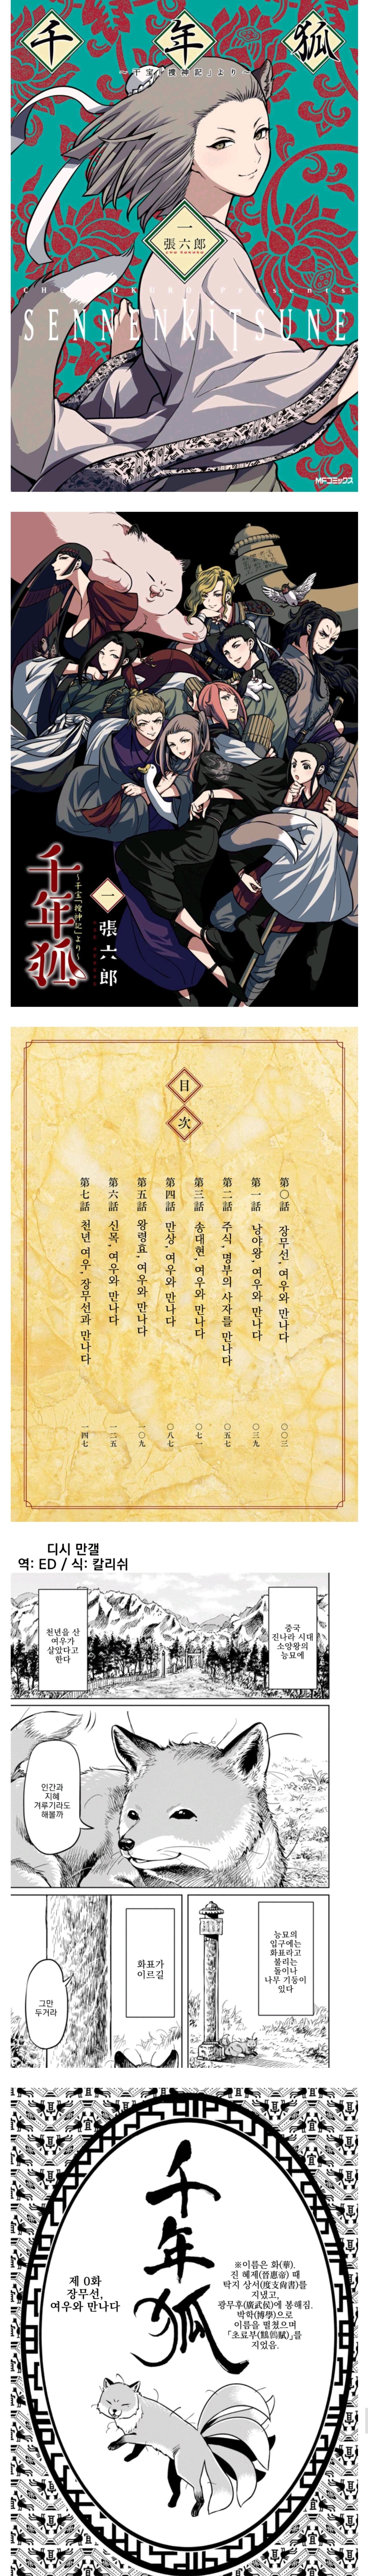 千 年 狐
～干宝「捜神記」より～
一
張六郎
SENNENKITSUNE
MFコミックス
千年狐
～干宝「捜神記」より～
一
張六郎
目
次
第〇話 장무선, 여우와 만나다 〇〇三
第一話 낭야왕, 여우와 만나다 〇三九
第二話 주식, 명부의 사자를 만나다 〇五七
第三話 송대현, 여우와 만나다 〇七一
第四話 만상, 여우와 만나다 〇八七
第五話 왕령효, 여우와 만나다 一〇九
第六話 신목, 여우와 만나다 一二五
第七話 천년 여우, 장무선과 만나다 一四七
디시 만갤
역: ED / 식: 칼리쉬
중국
진나라 시대
소양왕의
능묘에
천년을 산
여우가
살았다고
한다
인간과
지혜
겨루기라도
해볼까
능묘의
입구에는
화표라고
불리는
돌이나
나무 기둥이
있다
화표가
이르길
그만
두거라
千年狐
제 0화
장무선,
여우와 만나다
※이름은 화(華).
진 혜제(晉惠帝) 때
탁지 상서(度支尙書)를
지냈고,
광무후(廣武侯)에 봉해짐.
박학(博學)으로
이름을 떨쳤으며
「초료부(鷦鷯賦)」를
지었음.